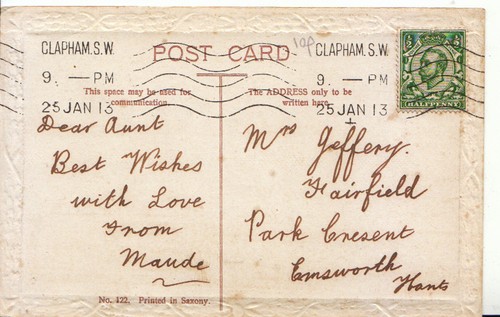 CLAPHAM.S.W
9. — PM
25 JAN 13
POST CARD
10p
CLAPHAM.S.W
9. — PM
25 JAN 13
HALFPENNY
This space may be used for
communication.
The ADDRESS only to be
written here.
Dear Aunt
Best Wishes
with Love
From
Maude
Mrs Jeffery.
Fairfield
Park Cresent
Emsworth
Hants
No. 122. Printed in Saxony.